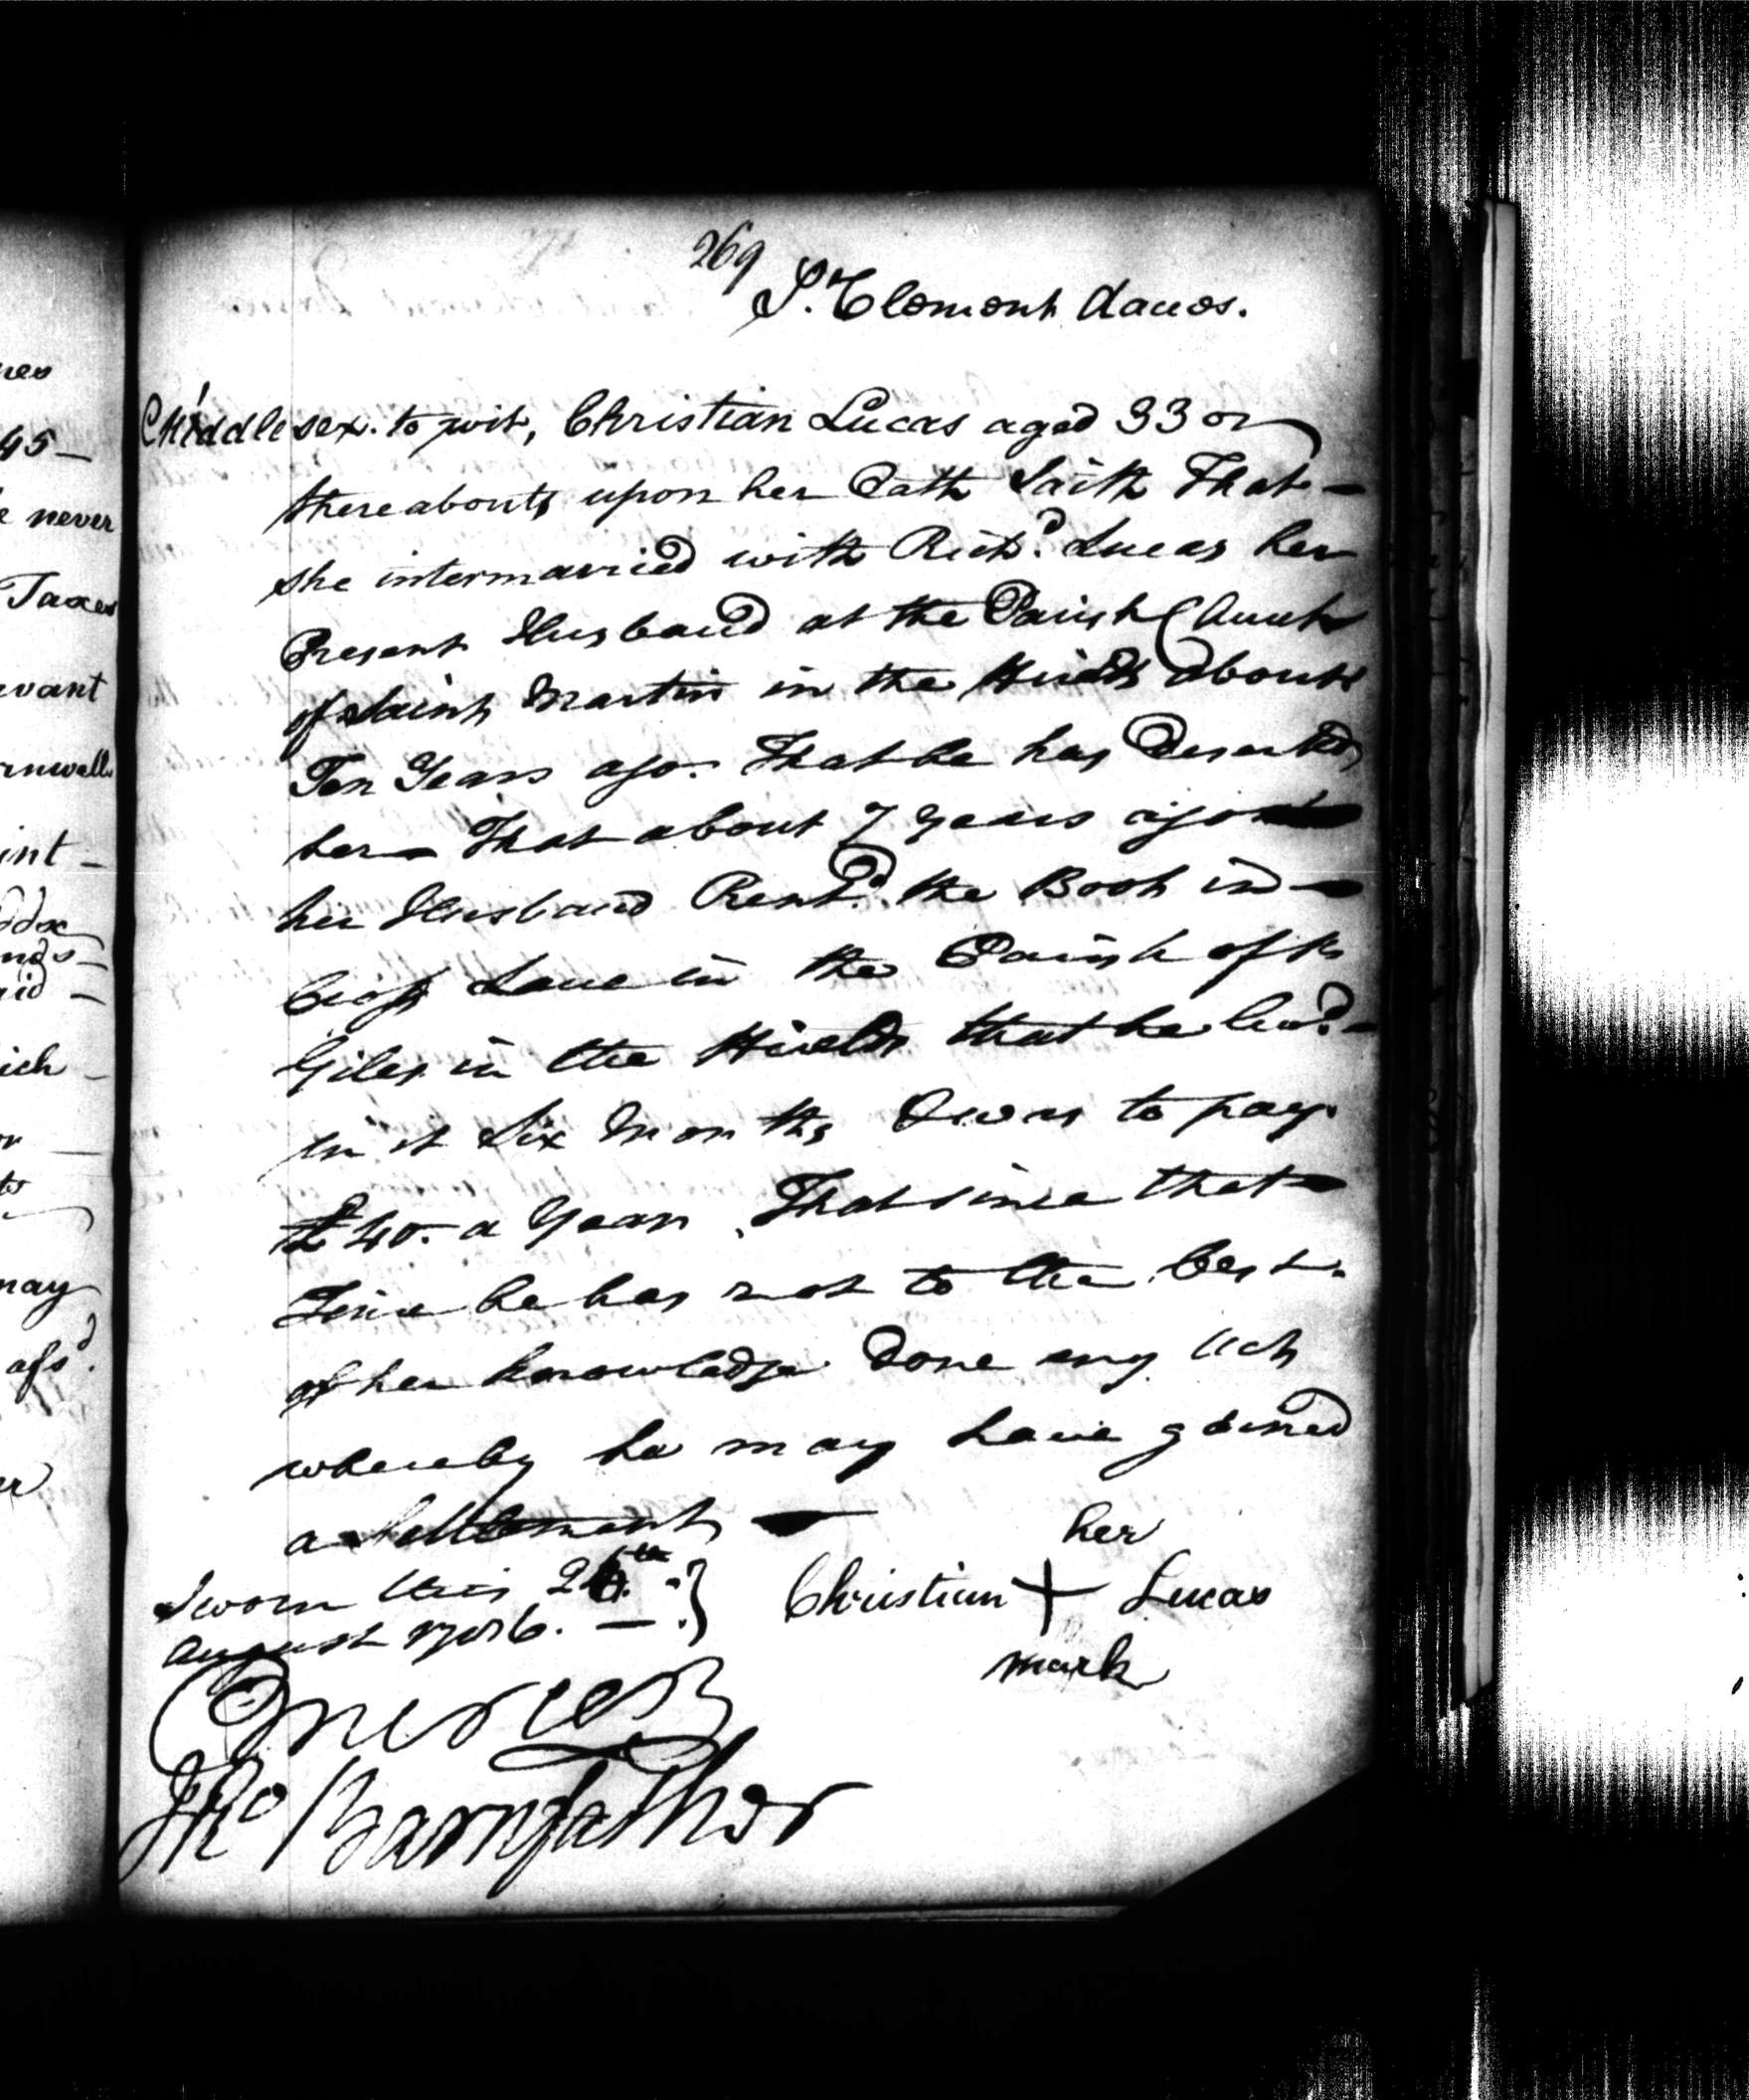 269
St. Clement Danes.
Middlesex. to wit, Christian Lucas aged 33 or
thereabouts upon her Oath Saith That -
she intermarried with Richd. Lucas her
Present Husband at the Parish Church
of Saint Martin in the Fields about
Ten Years ago. That he has Deserted
her - That about 7 years ago
her Husband Rentd. the in -
Lane in the Parish of St.
Giles in the Fields that he livd. -
in it Six Months & was to pay
£40. a Year. That since that
Time he has not to the best
of her knowledge Done any Act
whereby he may have gained
a Settlement
Sworn this
August 1786. -
her
Christian + Lucas
mark
Thos Barnfather
nes
45 -
never
Taxes
vant
rnwall
int -
ddx
nds -
id -
ich -
or
may
afsd.